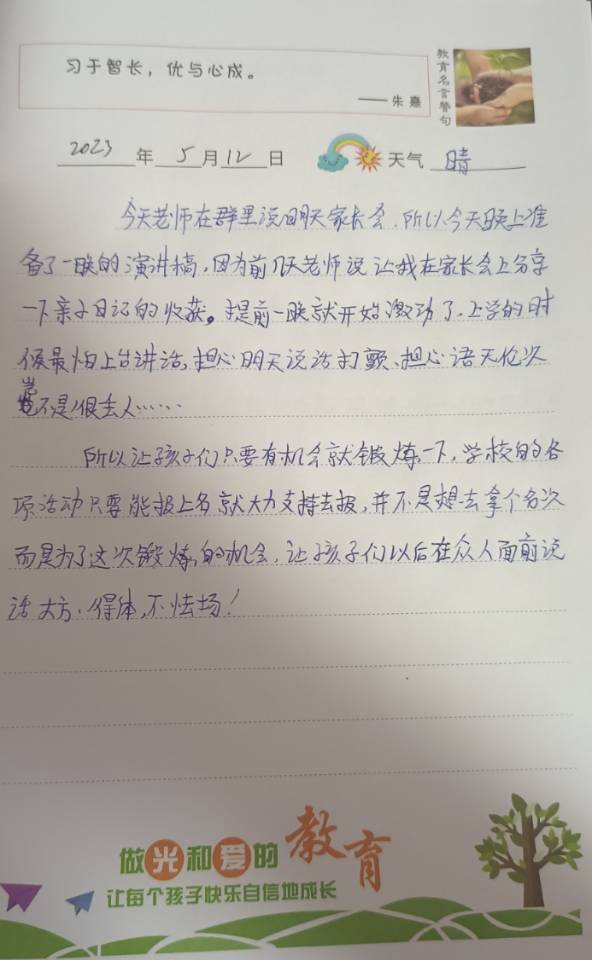 习于智长，优与心成。
——朱熹
教育名言警句
2023年5月12日 天气 晴
今天老师在群里说明天家长会，所以今天晚上准
备了一晚的演讲稿，因为前几天老师说让我在家长会上分享
一下亲子日记的收获。提前一晚就开始激动了，上学的时
候最怕上台讲话，担心明天说话打颤、担心语无伦次
岂不是很丢人……
所以让孩子们只要有机会就锻炼一下，学校的各
项活动只要能报上名就大力支持去报，并不是想去拿个名次
而是为了这次锻炼的机会，让孩子们以后在众人面前说
话大方、得体，不怯场！
做光和爱的教育
让每个孩子快乐自信地成长